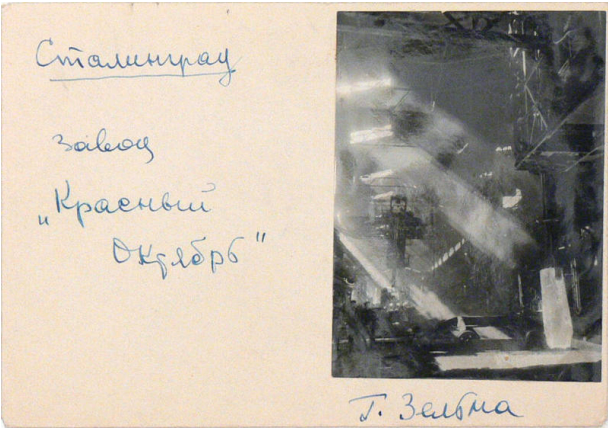 Сталинград
завод
„Красный
Октябрь"
Г. Зельма